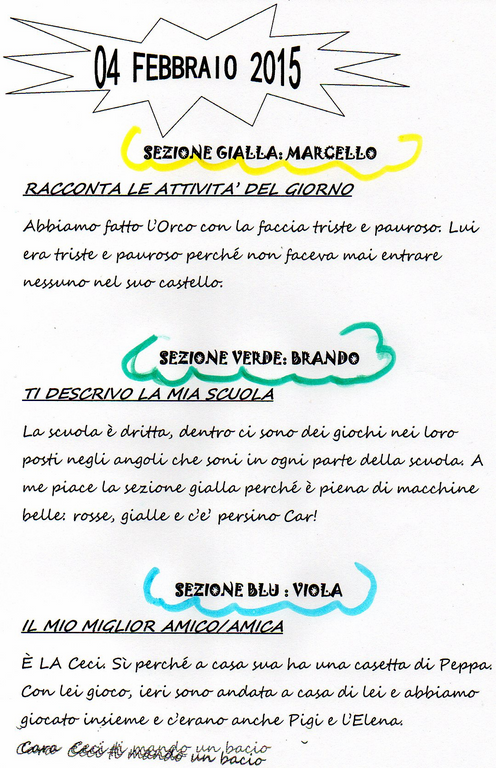 04 FEBBRAIO 2015
SEZIONE GIALLA: MARCELLO
RACCONTA LE ATTIVITA' DEL GIORNO
Abbiamo fatto l'Orco con la faccia triste e pauroso. Lui
era triste e pauroso perché non faceva mai entrare
nessuno nel suo castello.
SEZIONE VERDE: BRANDO
TI DESCRIVO LA MIA SCUOLA
La scuola è dritta, dentro ci sono dei giochi nei loro
posti negli angoli che soni in ogni parte della scuola. A
me piace la sezione gialla perché è piena di macchine
belle: rosse, gialle e c'e' persino Car!
SEZIONE BLU : VIOLA
IL MIO MIGLIOR AMICO/AMICA
È LA Ceci. Sì perché a casa sua ha una casetta di Peppa.
Con lei gioco, ieri sono andata a casa di lei e abbiamo
giocato insieme e c'erano anche Pigi e l'Elena.
Cara Ceci ti mando un bacio